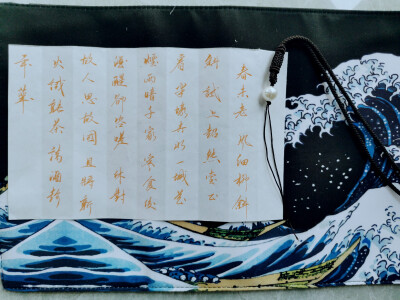 春未老风细柳斜
斜试上超然台上
看半壕春水一城花
烟雨暗千家寒食后
酒醒却咨嗟休对
故人思故国且将新
火试新茶诗酒趁
年华